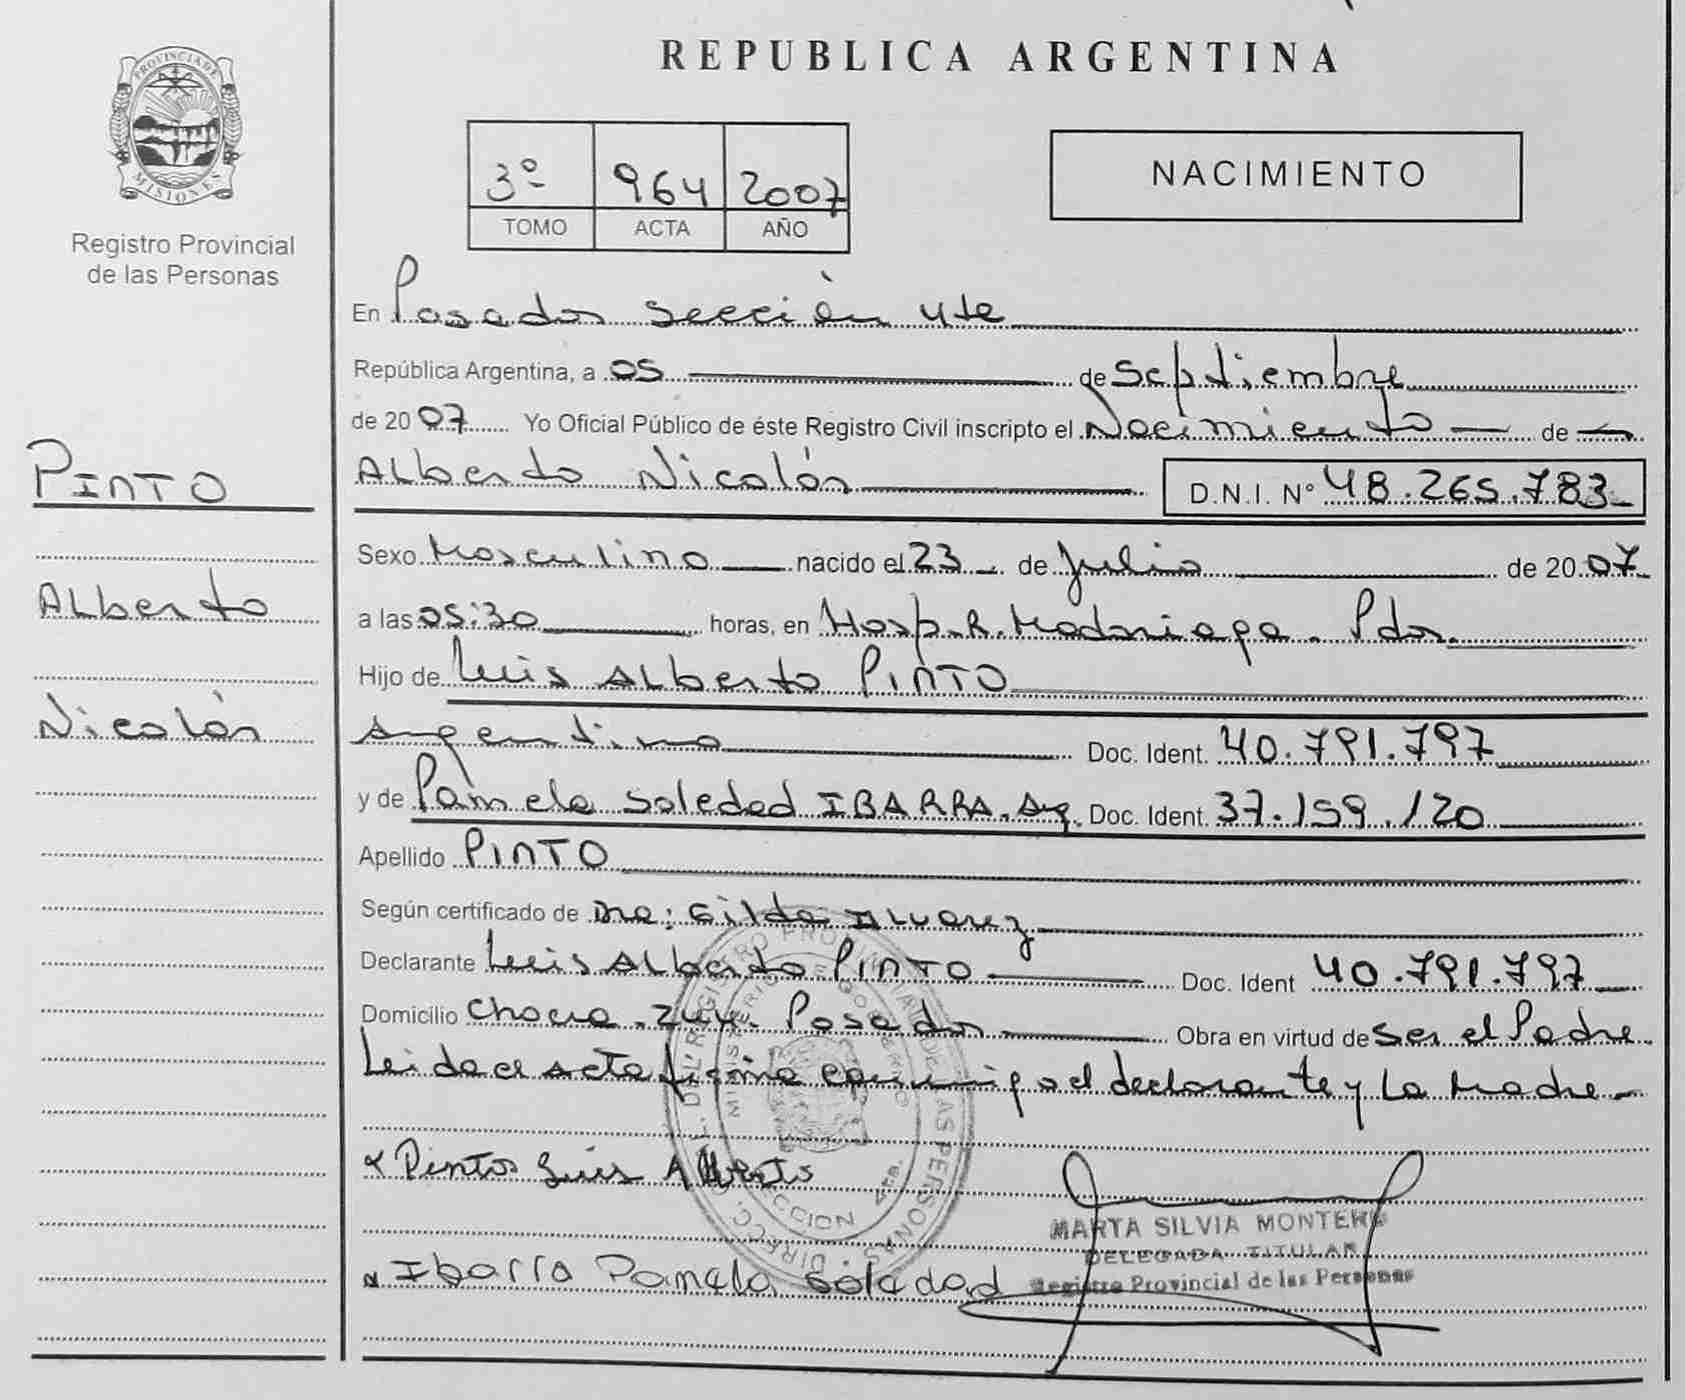 PROVINCIA DE
MISIONES
Registro Provincial
de las Personas
PINTO
Alberto
Nicolás
REPUBLICA ARGENTINA
3º 964 2007
TOMO ACTA AÑO
NACIMIENTO
En Posadas sección 4ta
República Argentina, a 05 de Septiembre
de 2007 Yo Oficial Público de éste Registro Civil inscripto el Nacimiento de
Alberto Nicolás D.N.I. Nº 48.265.783
Sexo Masculino nacido el 23 de Julio de 2007
a las 05:30 horas, en Hosp. R. Madariaga. Pdas.
Hijo de Luis Alberto PINTO
Argentino Doc. Ident. 40.791.797
y de Pamela Soledad IBARRA. Arg. Doc. Ident. 37.159.120
Apellido PINTO
Según certificado de Dra: Gilda Alvarez
Declarante Luis Alberto PINTO Doc. Ident 40.791.797
Domicilio Chacra. 244. Posadas Obra en virtud de Ser el Padre
Leida el acta firma conmigo el declarante y La Madre
Pinto Luis Alberto
MARTA SILVIA MONTERO
DELEGADA TITULAR
Ibarra Pamela Soledad Registro Provincial de las Personas